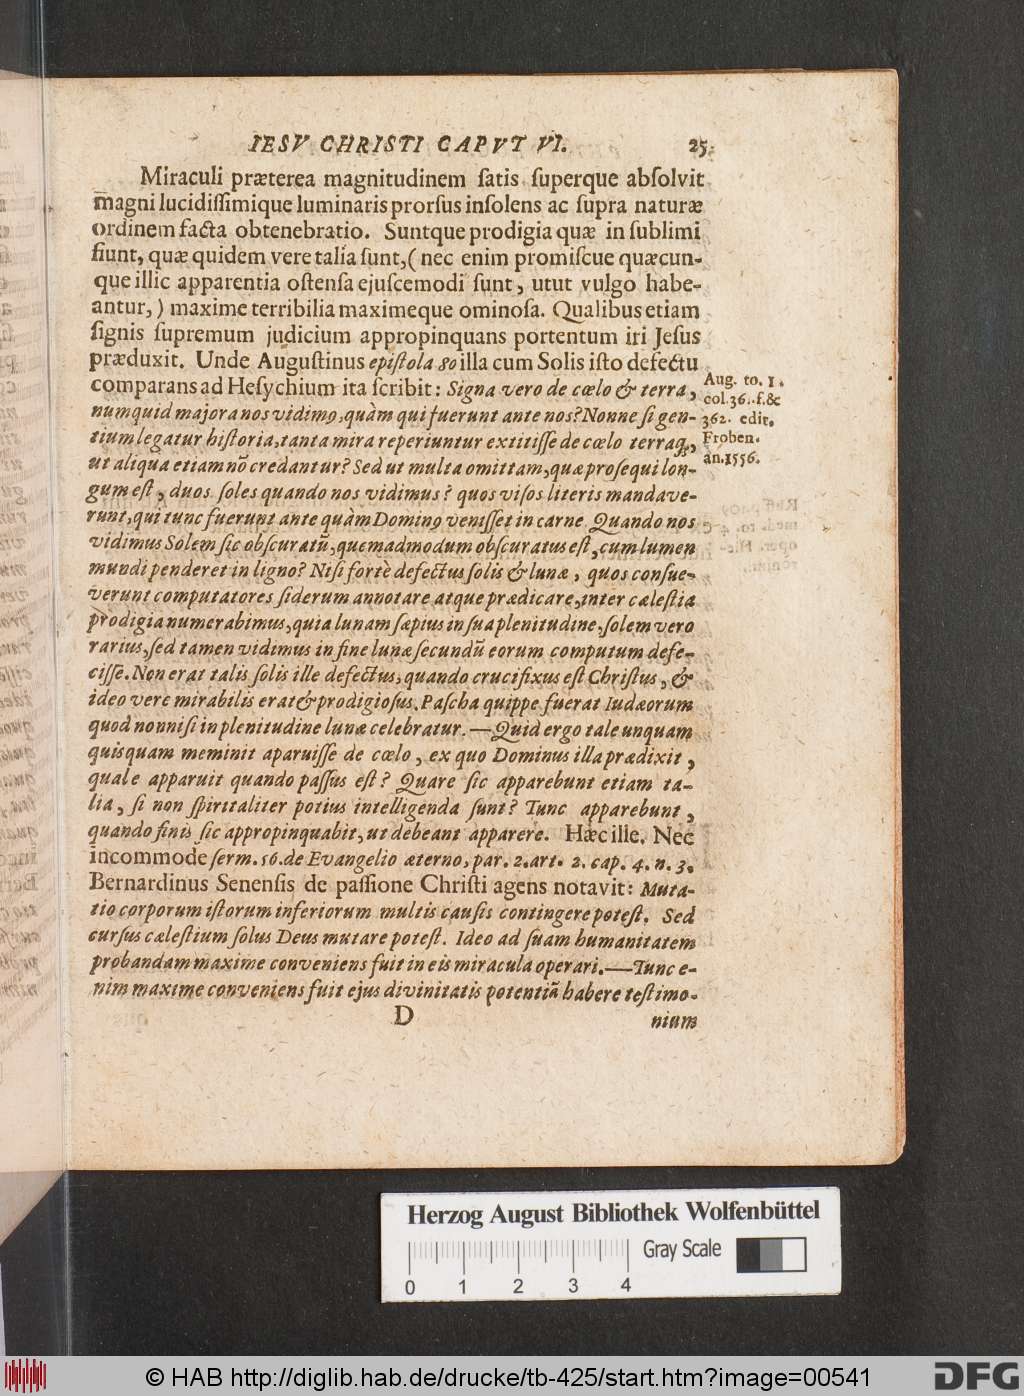 IESV CHRISTI CAPVT VI. 25.
Miraculi præterea magnitudinem ſatis ſuperque abſolvit
magni lucidiſſimique luminaris prorſus inſolens ac ſupra naturæ
ordinem facta obtenebratio. Suntque prodigia quæ in ſublimi
fiunt, quæ quidem vere talia ſunt, ( nec enim promiſcue quæcun-
que illic apparentia oſtenſa ejuſcemodi ſunt, utut vulgo habe-
antur, ) maxime terribilia maximeque ominoſa. Qualibus etiam
ſignis ſupremum judicium appropinquans portentum iri Jeſus
præduxit. Unde Auguſtinus epiſtola 80 illa cum Solis iſto defectu
comparans ad Heſychium ita ſcribit: Signa vero de cœlo & terra,
numquid majora nos vidimꝰ, quàm qui fuerunt ante nos? Nonne ſi gen-
tium legatur hiſtoria, tanta mira reperiuntur extitiſſe de cœlo terraq́;,
ut aliqua etiam nō credantur? Sed ut multa omittam, quæ proſequi lon-
gum eſt, duos ſoles quando nos vidimus? quos viſos literis mandave-
runt, qui tunc fuerunt ante quàm Dominꝰ veniſſet in carne. Quando nos
vidimus Solem ſic obſcuratū, quemadmodum obſcuratus eſt, cum lumen
mundi penderet in ligno? Niſi fortè defectus ſolis & lunæ, quos conſue-
verunt computatores ſiderum annotare atque prædicare, inter cæleſtia
prodigia numerabimus, quia lunam ſæpius in ſua plenitudine, ſolem vero
rarius, ſed tamen vidimus in fine lunæ ſecundū eorum computum defe-
ciſſe. Non erat talis ſolis ille defectus, quando crucifixus eſt Chriſtus, &
ideo vere mirabilis erat & prodigioſus. Paſcha quippe fuerat Iudæorum
quod nonniſi in plenitudine lunæ celebratur. — Quid ergo tale unquam
quisquam meminit aparuiſſe de cœlo, ex quo Dominus illa prædixit,
quale apparuit quando paſſus eſt? Quare ſic apparebunt etiam ta-
lia, ſi non ſpiritaliter potius intelligenda ſunt? Tunc apparebunt,
quando finis ſic appropinquabit, ut debeant apparere. Hæc ille. Nec
incommode ſerm. 56. de Evangelio æterno, par. 2. art. 2. cap. 4. n. 3.
Bernardinus Senenſis de paſſione Chriſti agens notavit: Muta-
tio corporum iſtorum inferiorum multis cauſis contingere poteſt. Sed
curſus cæleſtium ſolus Deus mutare poteſt. Ideo ad ſuam humanitatem
probandam maxime conveniens fuit in eis miracula operari. — Tunc e-
nim maxime conveniens fuit ejus divinitatis potentiā habere teſtimo-
D nium
Aug. to. 1.
col. 36. f. &
362. edit.
Froben.
an. 1556.
Herzog August Bibliothek Wolfenbüttel
Gray Scale
0 1 2 3 4
© HAB http://diglib.hab.de/drucke/tb-425/start.htm?image=00541
DFG